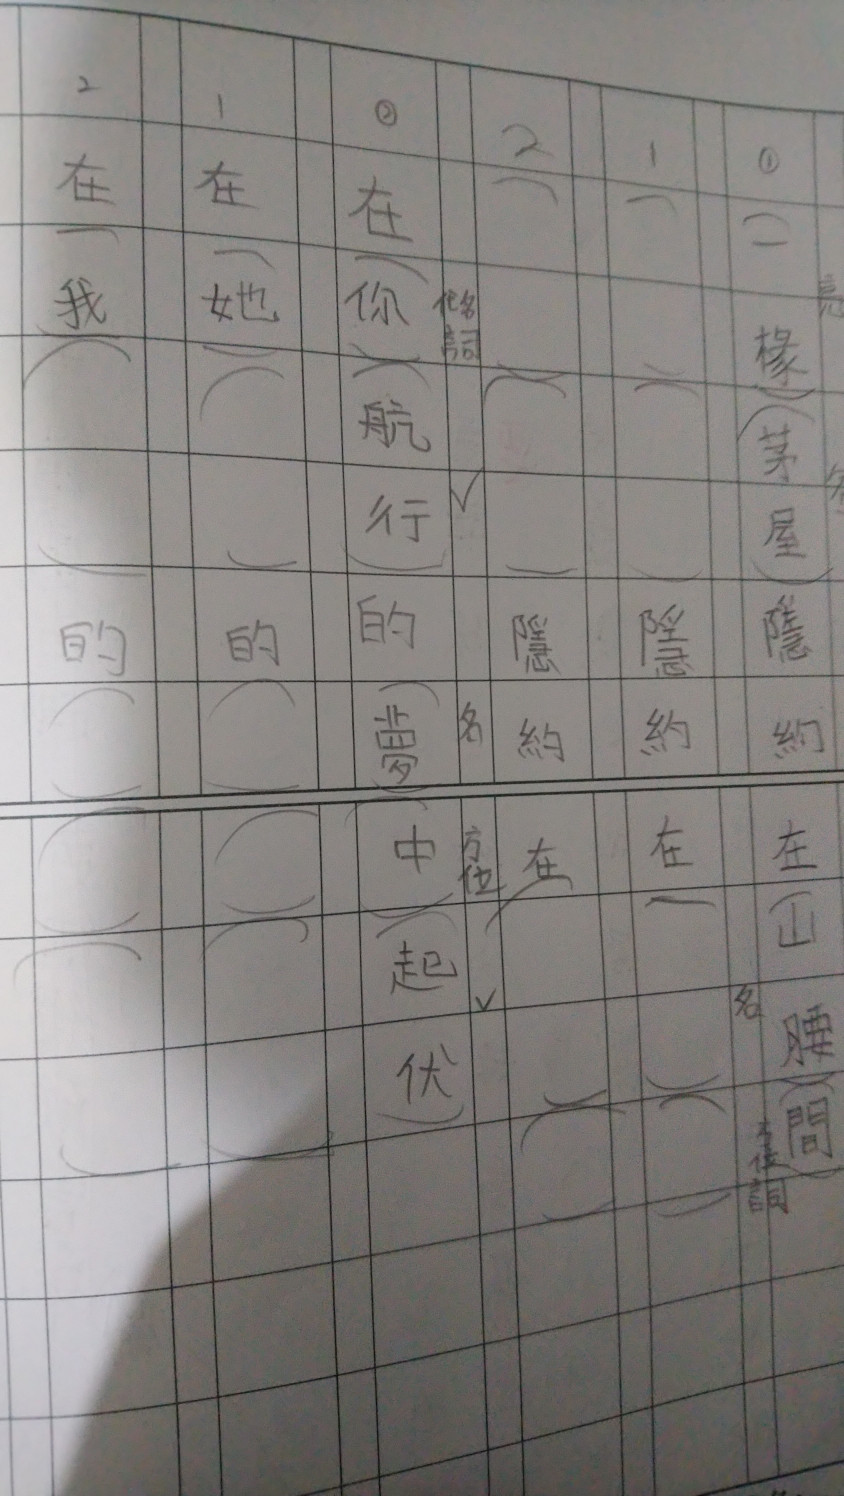 ①（一椽）（茅屋）隱約在（山腰）（間）
名
方位詞
1（　）（　）隱約在（　）（　）
2（　）（　）隱約在（　）（　）
②在（你）（航行）的（夢）（中）（起伏）
代名詞
v
名
方位
v
1在（她）（　）的（　）（　）（　）
2在（我）（　）的（　）（　）（　）